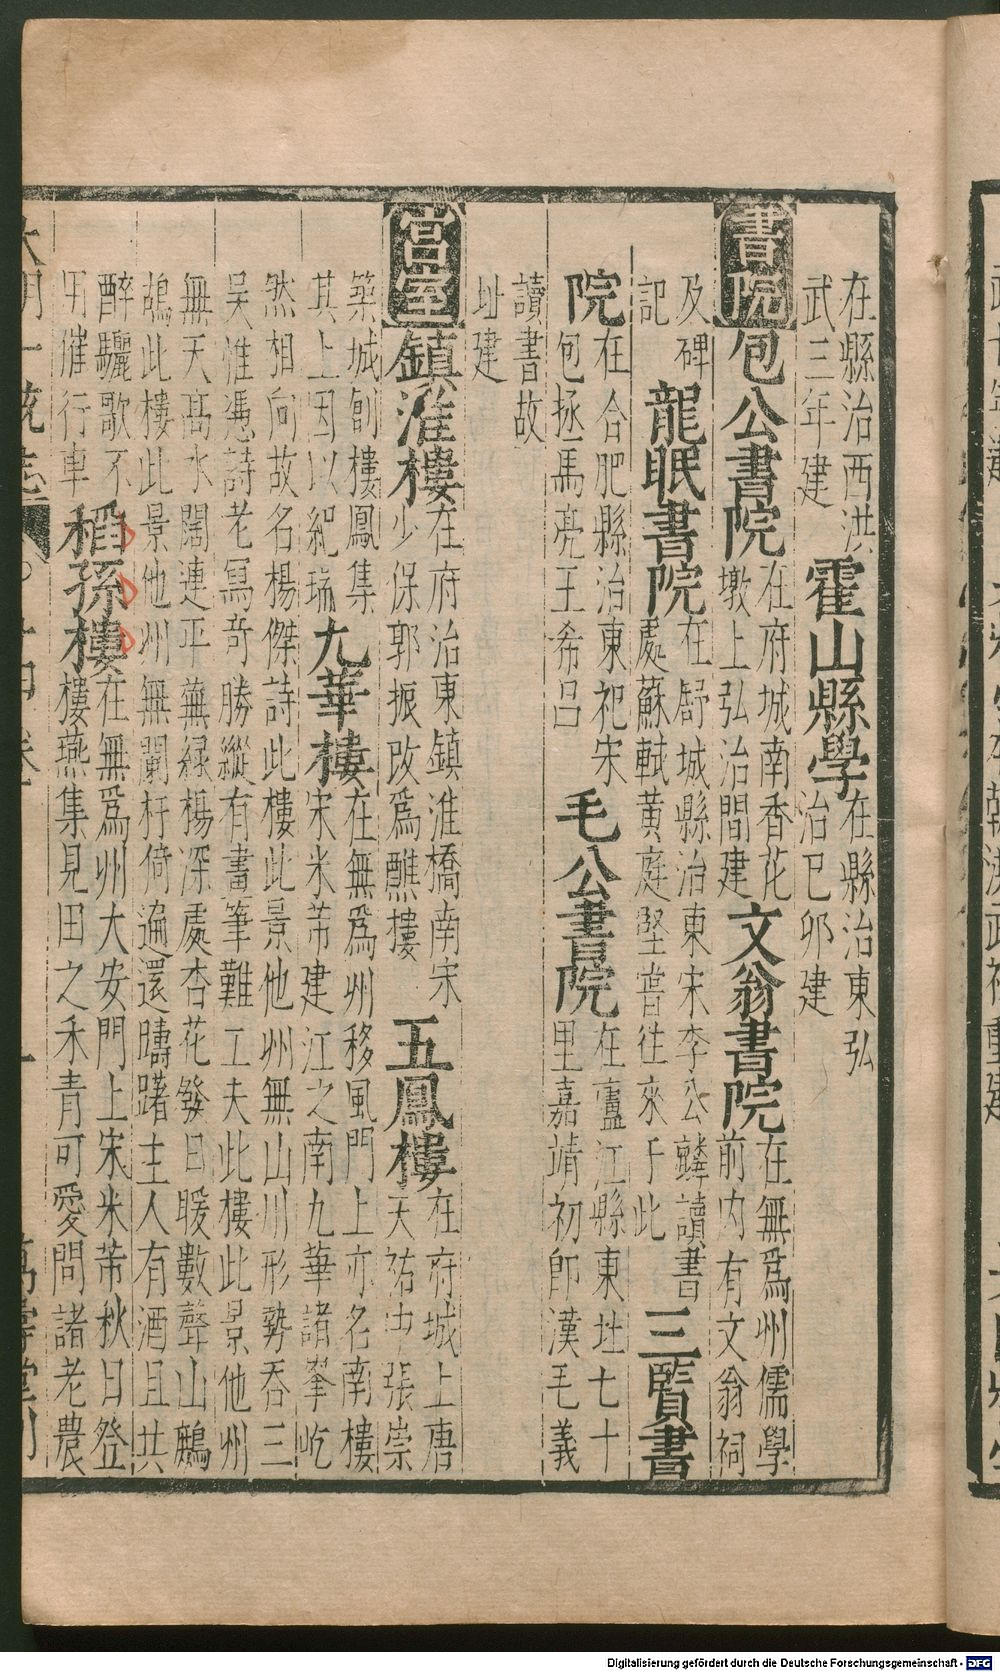 在縣治西洪
武三年建
霍山縣學
在縣治東弘
治巳卯建
書院
包公書院
在府城南香花
墩上弘治間建
文翁書院
在無爲州儒學
前内有文翁祠
及碑
記
龍眠書院
在舒城縣治東宋李公麟讀書
處蘇軾黄庭堅嘗往來于此
三賢書
院
在合肥縣治東祀宋
包拯馬亮王希呂
毛公書院
在廬江縣東北七十
里嘉靖初即漢毛義
讀書故
址建
宫室
鎮淮樓
在府治東鎮淮橋南宋
少保郭振改爲譙樓
五鳳樓
在府城上唐
天祐中張崇
築城創樓鳳集
其上因以紀瑞
九華樓
在無爲州移風門上亦名南樓
宋米芾建江之南九華諸峯屹
然相向故名楊傑詩此樓此景他州無山川形勢吞三
吴惟憑詩老冩奇勝縱有畫筆難工夫此樓此景他州
無天髙水闊連平蕪緑楊深處杏花發日暖數聲山鷓
鴣此樓此景他州無闌杆倚遍還躊躇主人有酒且共
醉驪歌不
用催行車
稻孫樓
在無爲州大安門上宋米芾秋日登
樓燕集見田之禾青可愛問諸老農
大明一統志
十四卷
萬壽堂刊
Digitalisierung gefördert durch die Deutsche Forschungsgemeinschaft - DFG